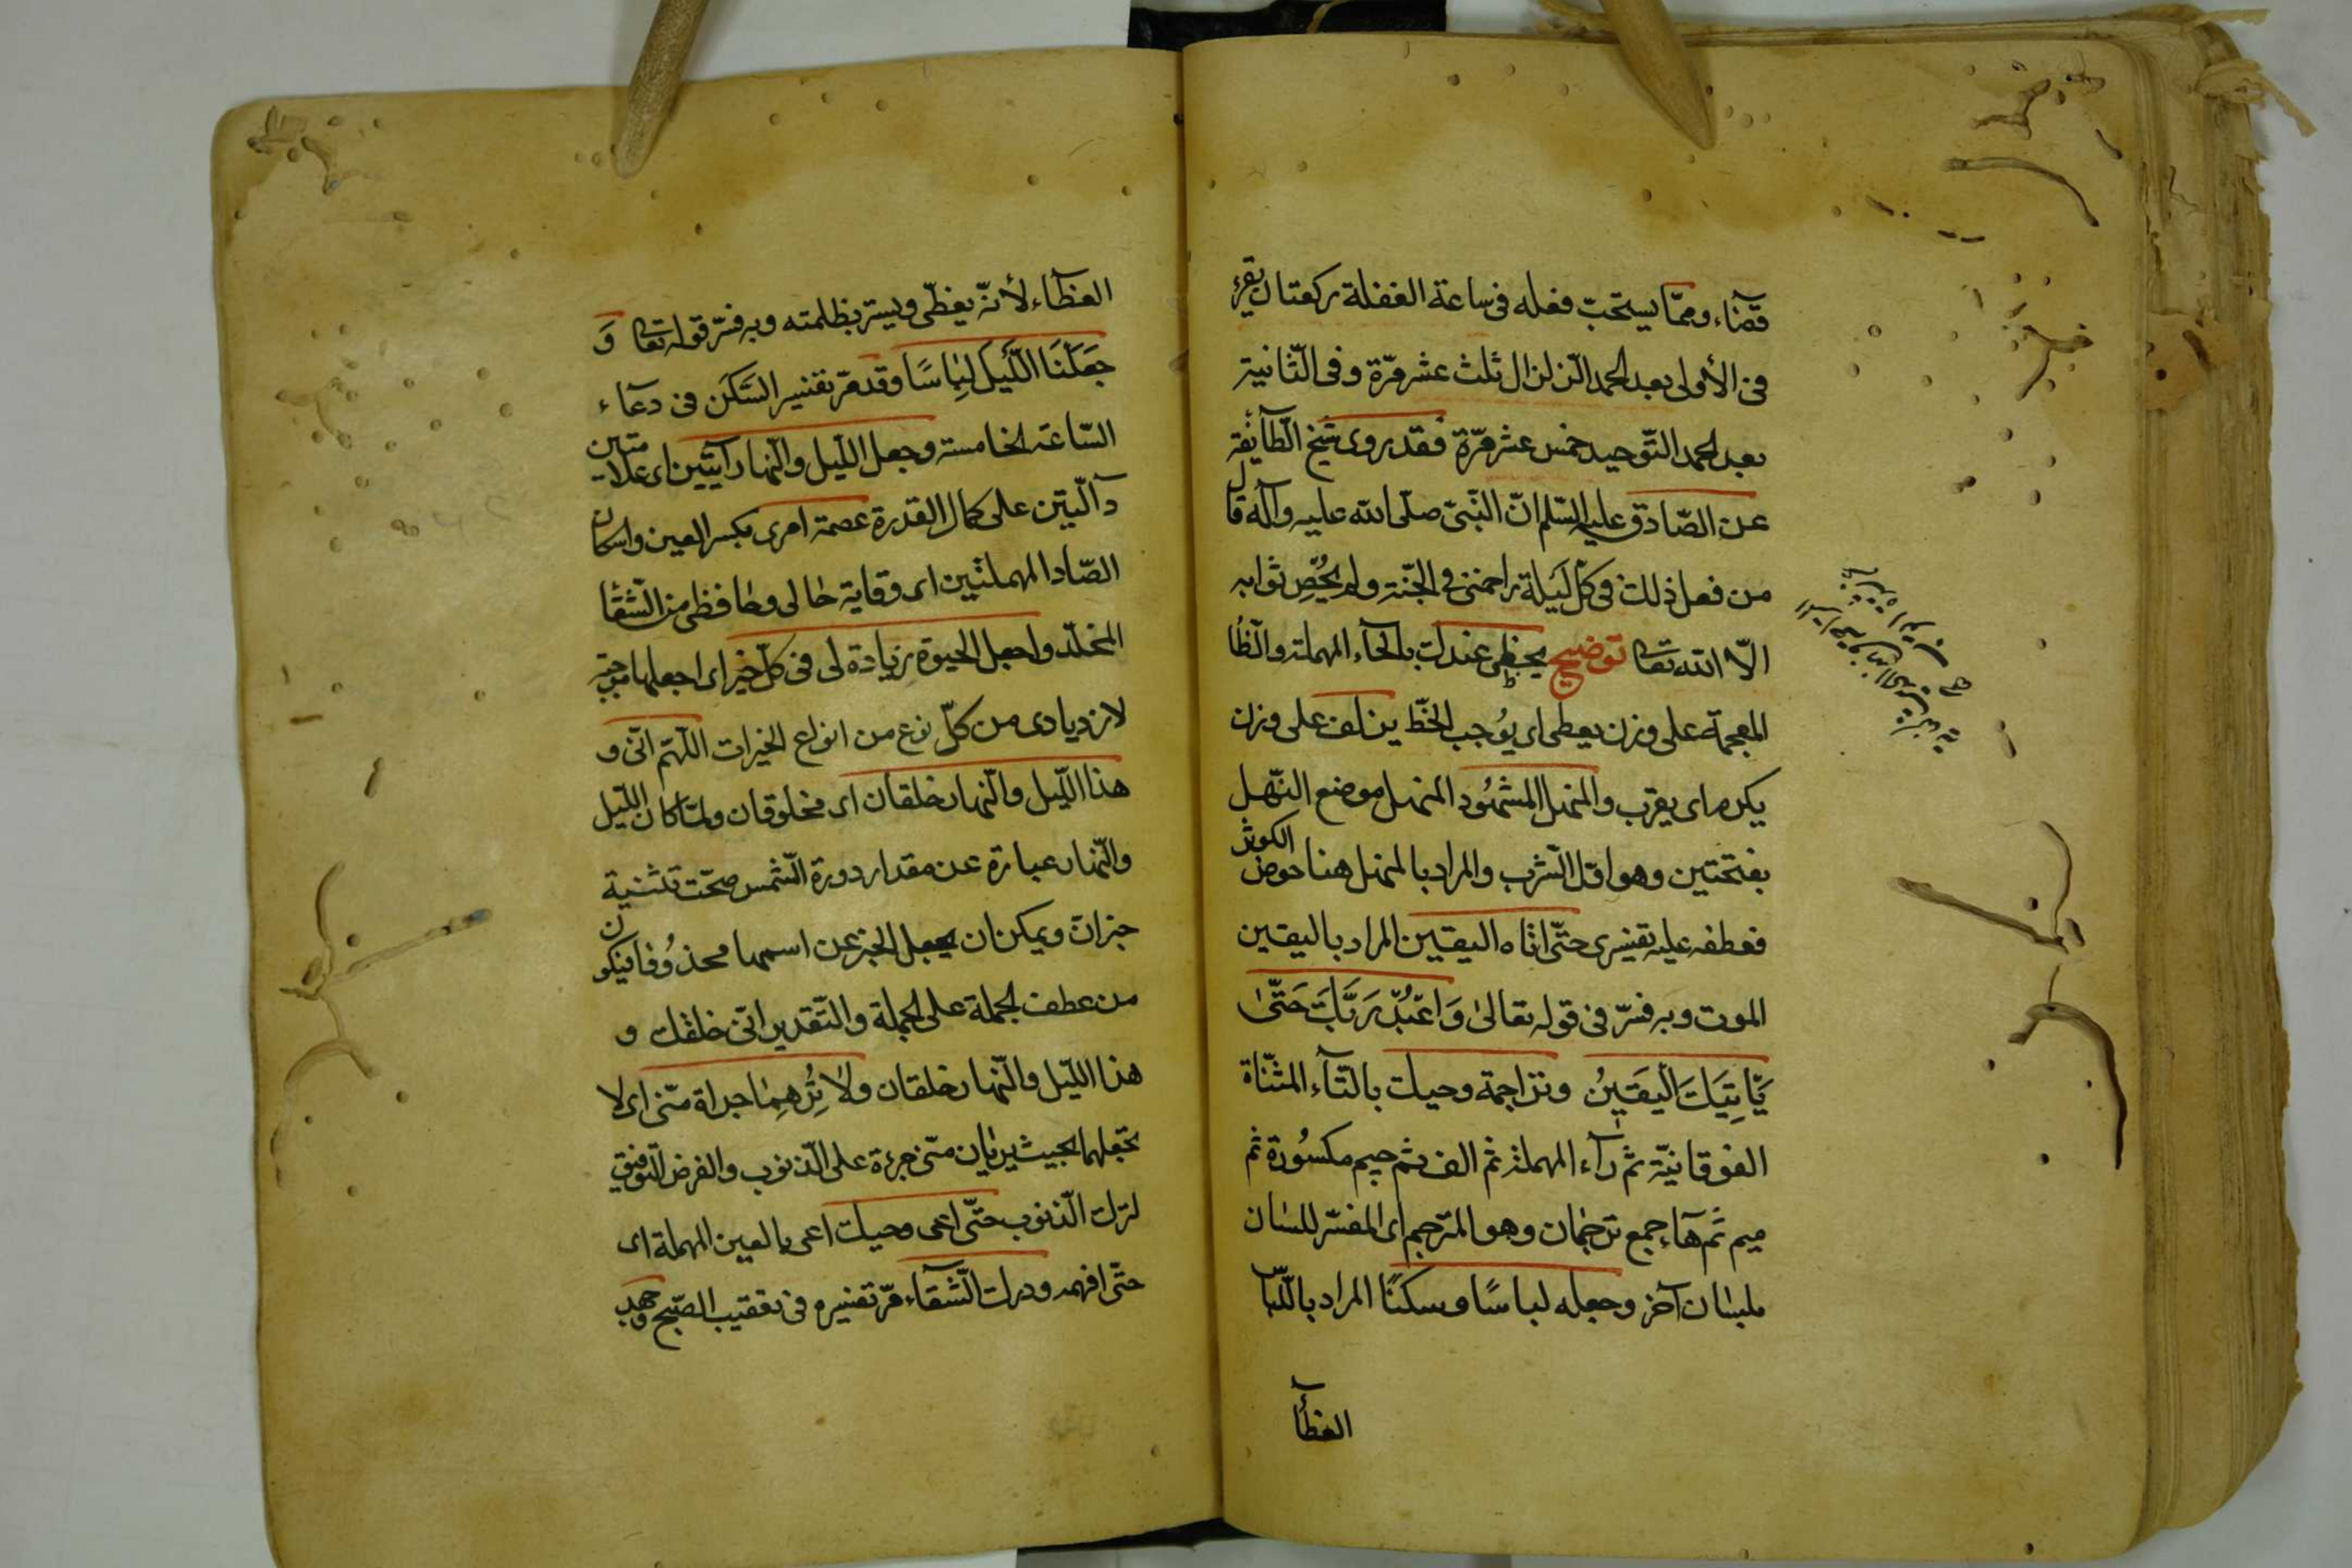 قضآء ومما يستحبّ فعله فى ساعة الغفلة ركعتان يقرء
فى الأولى بعد الحمد الزلزال ثلث عشر مرّة وفى الثّانية
بعد الحمد التّوحيد خمس عشر مرّة فقد روى شيخ الطّآئفة
عن الصّادق عليه السّلم انّ النّبىّ صلّى الله عليه وآله قال
من فعل ذلك فى كلّ ليلة زاحمنى فى الجنّة ولم يُحصِ ثوابه
الّا الله تعالى توضيح يحظى عندك بالحآء المهملة والظّا
المعجمة على وزن يعطى اى يُوجب الحظّ يزلف على وزن
يكرم اى يقرب والمنهل المشهُود المنهل موضع النّهل
بفتحتين وهو اوّل الشّرب والمراد بالمنهل هنا حوض الكوثر
فعطفه عليه تفسيرى حتّى اتاه اليقين المراد باليقين
الموت وبه فسّر فى قوله تعالىٰ وَاعْبُدْ رَبَّكَ حَتّىٰ
يَأتِيَكَ الْيَقينُ وتراجمة وحيك بالتّآء المثنّاة
الفوقانيّة ثم رآء المهملة ثم الف ثم جيم مكسُورة ثم
ميم ثم هآء جمع ترجمان وهو المترجم اى المفسّر للسان
بلسان آخر وجعله لباسًا وسكنًا المراد باللّبا
الغطآ
الغطآء لأنّه يغطّى ويستر بظلمته وبه فسّر قوله تعالى وَ
جَعَلْنَا اللَّيلَ لِبٰاسًا وقد مرّ تفسير السّكَن فى دعآء
السّاعة الخامسة وجعل اللّيل والنّهار آيتين اى علامتين
دآلّتين على كمال القدرة عصمة امرى بكسر العين واسكان
الصّاد المهملتين اى وقاية حالى وحافظى من الشّقا
المخلّد واجعل الحيوة زيادة لى فى كلّ خير اى اجعلها موجبة
لازديادى من كلّ نوع من انواع الخيرات اللّهمّ انّى و
هذا اللّيل والنّهار خلقان اى مخلوقان ولمّا كان اللّيل
والنّهار عبارة عن مقدار دورة الشّمس صحّت تثنية
خبران ويمكن ان يجعل الخبر عن اسمها محذُوفا فيكون
من عطف الجملة على الجملة والتّقدير انّى خلقك و
هذا اللّيل والنّهار خلقان ولا تُرِهِمٰا جراة منّى اى لا
تجعلهما بحيث يريان منّى جرءة على الذّنوب والغرض التّوفيق
لترك الذّنوب حتّى اعى وحيك اعى بالعين المهملة اى
حتّى افهمه ودرك الشّقآء مرّ تفسيره فى تعقيب الصّبح وجهد